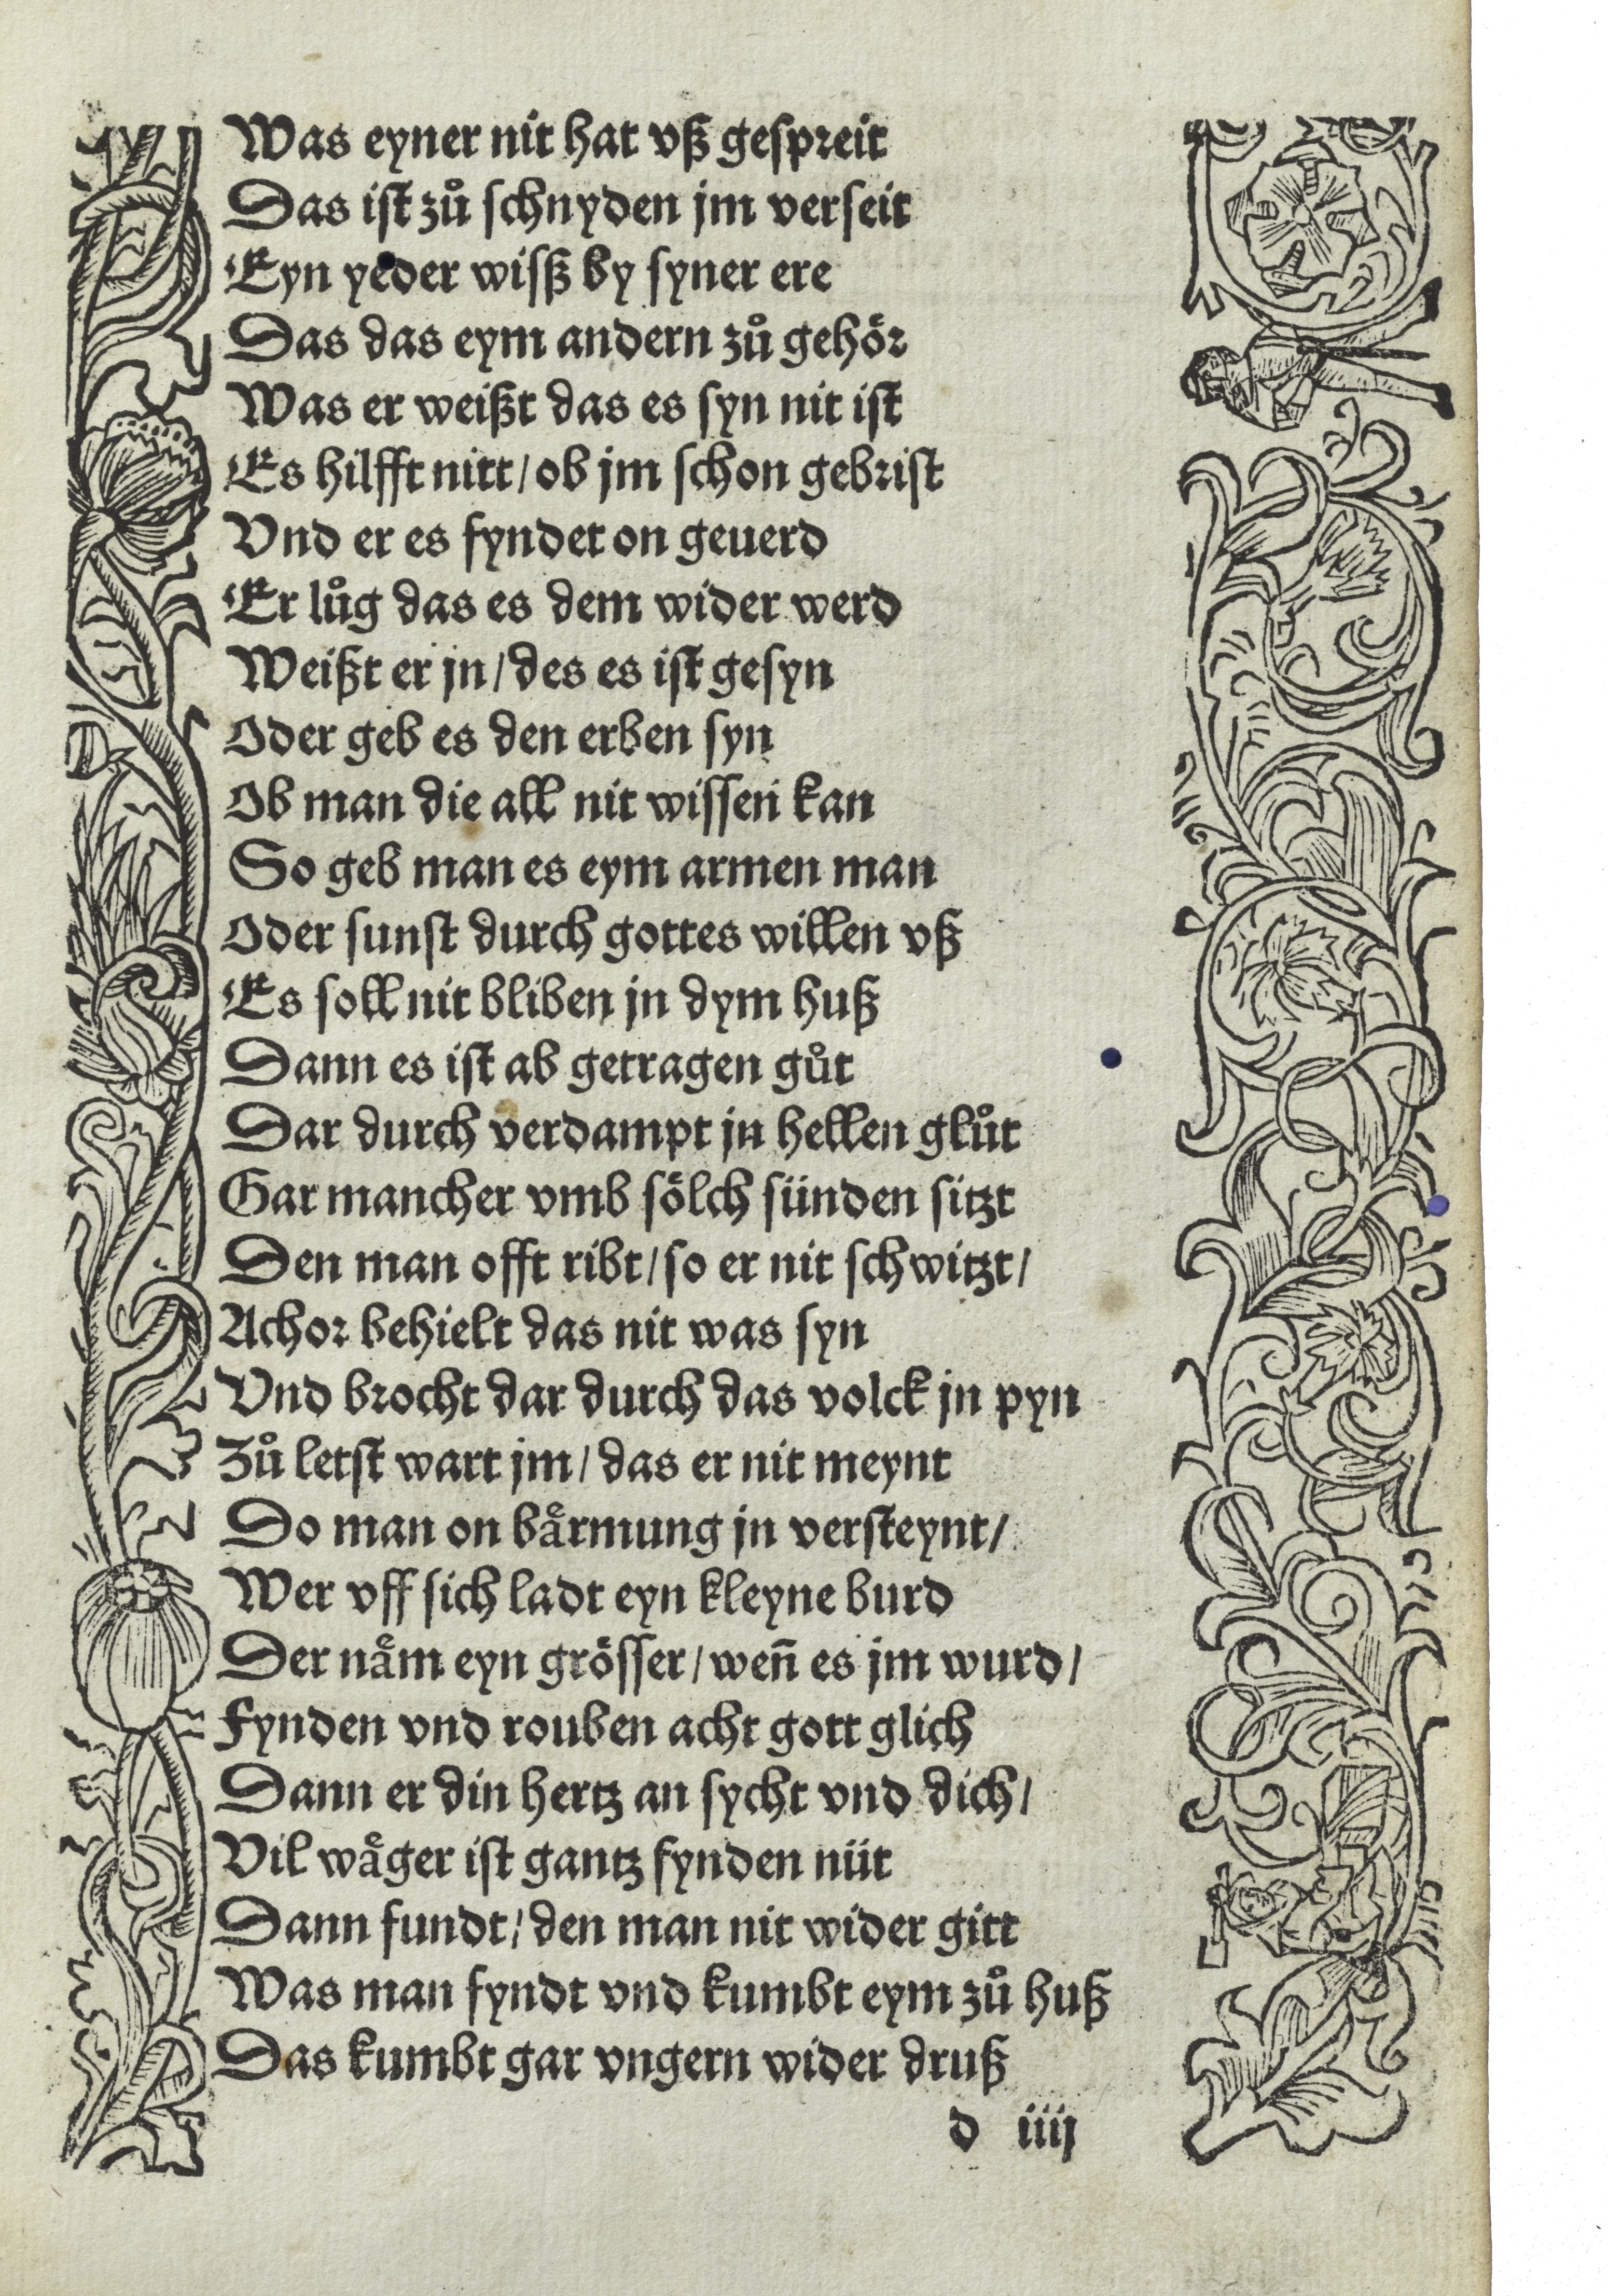 Was eyner nit hat vß gespreit
Das ist zuͦ schnyden jm verseit
Eyn yeder wisß by syner ere
Das das eym andern zuͦ gehoͤr
Was er weißt das es syn nit ist
Es hilfft nitt / ob jm schon gebrist
Vnd er es fyndet on geuerd
Er luͦg das es dem wider werd
Weißt er jn / des es ist gesyn
Oder geb es den erben syn
Ob man die all nit wissen kan
So geb man es eym armen man
Oder sunst durch gottes willen vß
Es soll nit bliben jn dym huß
Dann es ist ab getragen guͦt
Dar durch verdampt jn hellen gluͦt
Gar mancher vmb soͤlch sünden sitzt
Den man offt ribt / so er nit schwitzt /
Achor behielt das nit was syn
Vnd brocht dar durch das volck jn pyn
Zuͦ letst wart jm / das er nit meynt
Do man on baͤrmung jn versteynt /
Wer vff sich ladt eyn kleyne burd
Der naͤm eyn groͤsser / wen̄ es jm wurd /
Fynden vnd rouben acht gott glich
Dann er din hertz an sycht vnd dich /
Vil waͤger ist gantz fynden nüt
Dann fundt / den man nit wider gitt
Was man fyndt vnd kumbt eym zuͦ huß
Das kumbt gar vngern wider druß
d iiij